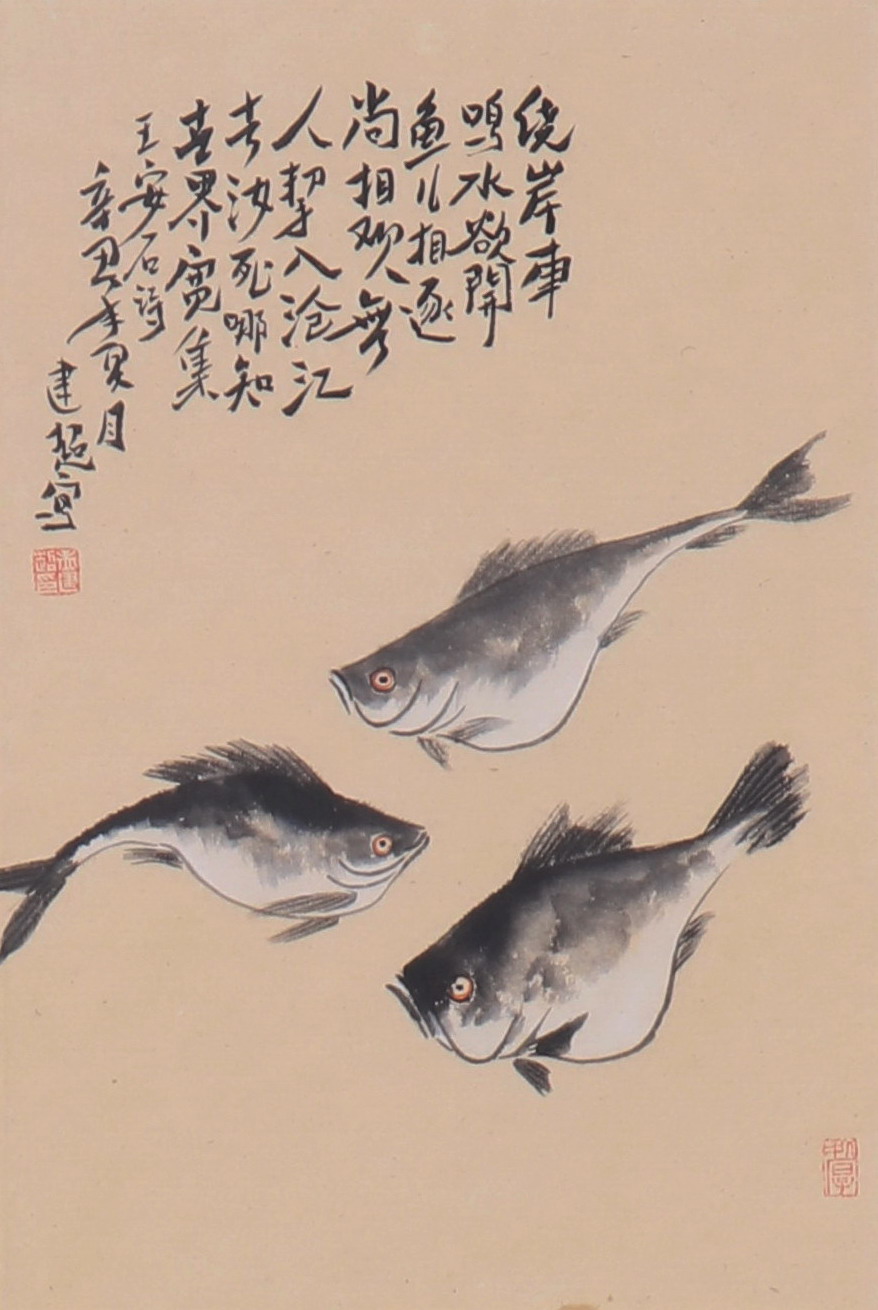 绕岸車
鳴水欲開
鱼儿相逐
尚相欢無
人挈入沧江
去汝死哪知
界寬集
王安石诗
辛丑年夏月
建超写